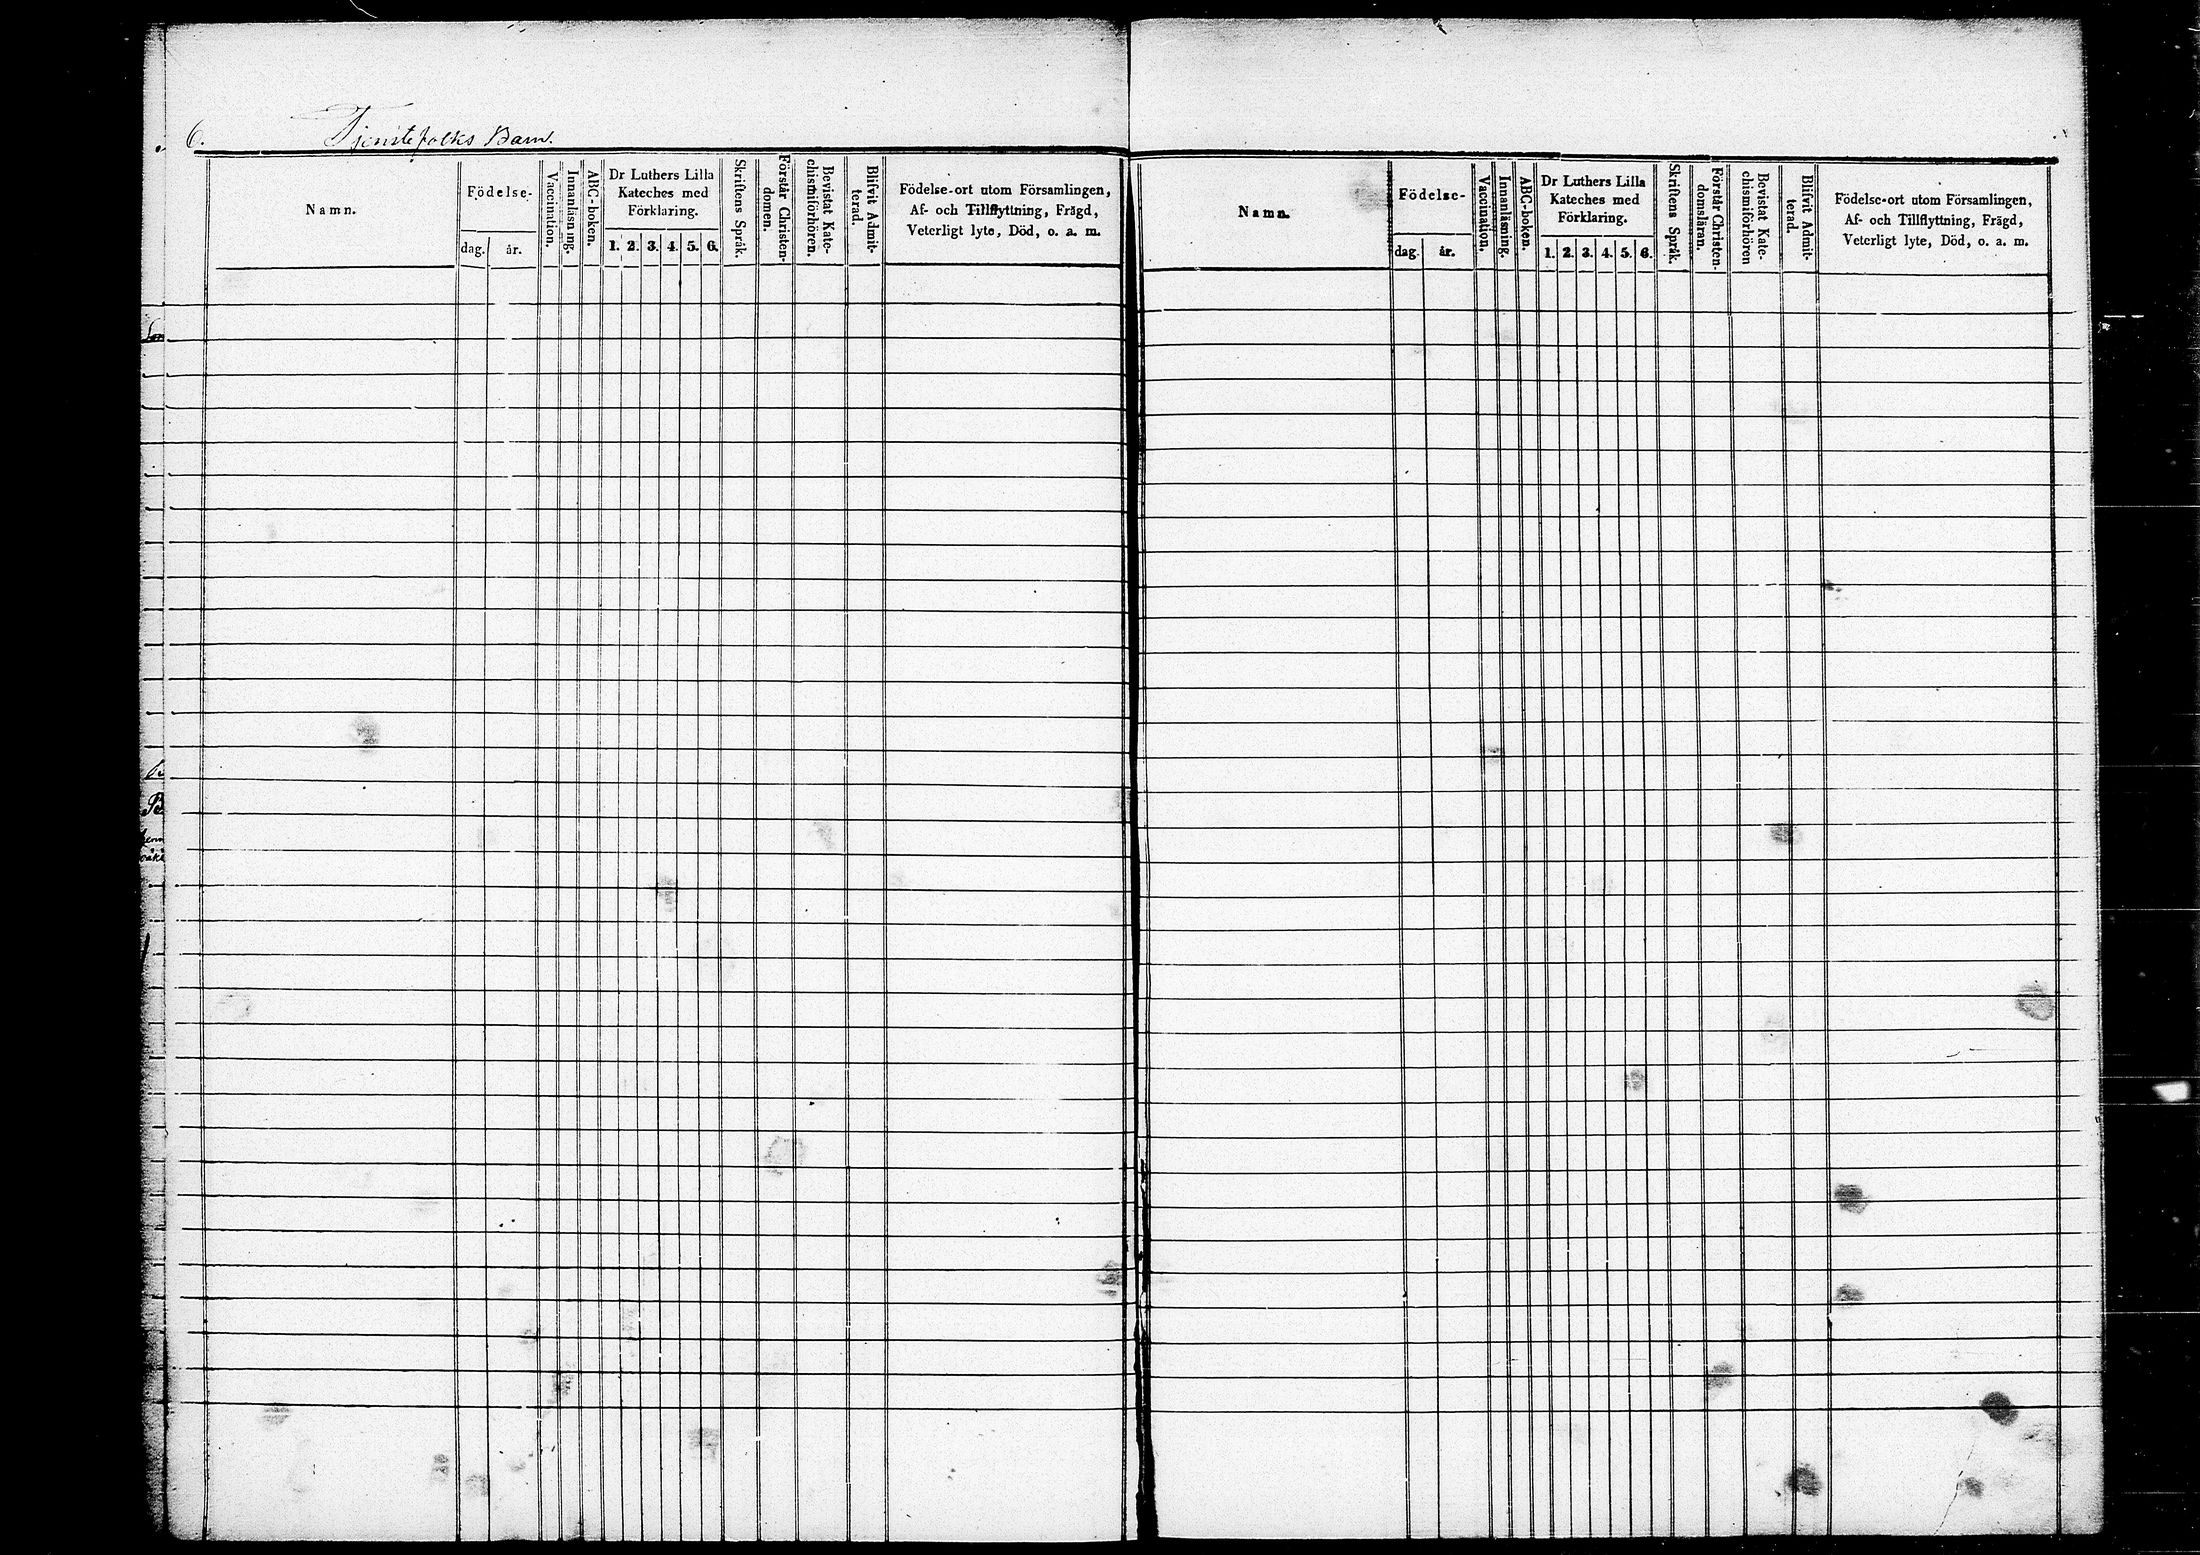 6.
Tjenstefolks Barn.
Namn.
Födelse-
dag.
år.
Vaccination.
Innanläsning.
ABC-boken.
Dr Luthers Lilla
Kateches med
Förklaring.
1. 2. 3. 4. 5. 6.
Skriftens Språk.
Förstår Christen-
domen.
Bevistat Kate-
chismiförhören.
Blifvit Admit-
terad.
Födelse-ort utom Församlingen,
Af- och Tillflyttning, Frägd,
Veterligt lyte, Död, o. a. m.
Namn.
Födelse-
dag.
år.
Vaccination.
Innanläsning.
ABC-boken.
Dr Luthers Lilla
Kateches med
Förklaring.
1. 2. 3. 4. 5. 6.
Skriftens Språk.
Förstår Christen-
domsläran.
Bevistat Kate-
chismiförhören
Blifvit Admit-
terad.
Födelse-ort utom Församlingen,
Af- och Tillflyttning, Frägd,
Veterligt lyte, Död, o. a. m.